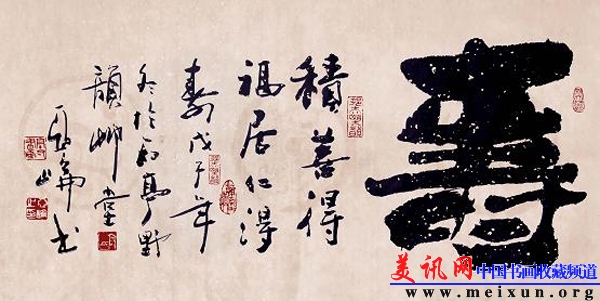 壽
積善得
福居仁得
壽戊子年
冬於野
韻艸堂
书
美讯网 中国书画收藏频道
www.meixun.org